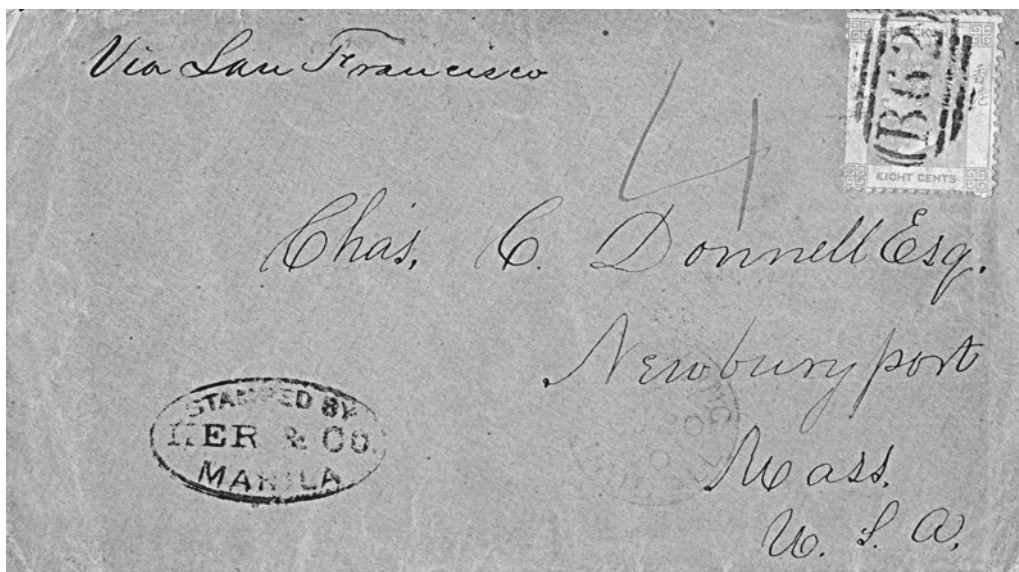 Via San Francisco
B62
EIGHT CENTS
4
Chas. C. Donnell Esq.
Newburyport
Mass.
U. S. A.
STAMPED BY
& Co.
MANILA